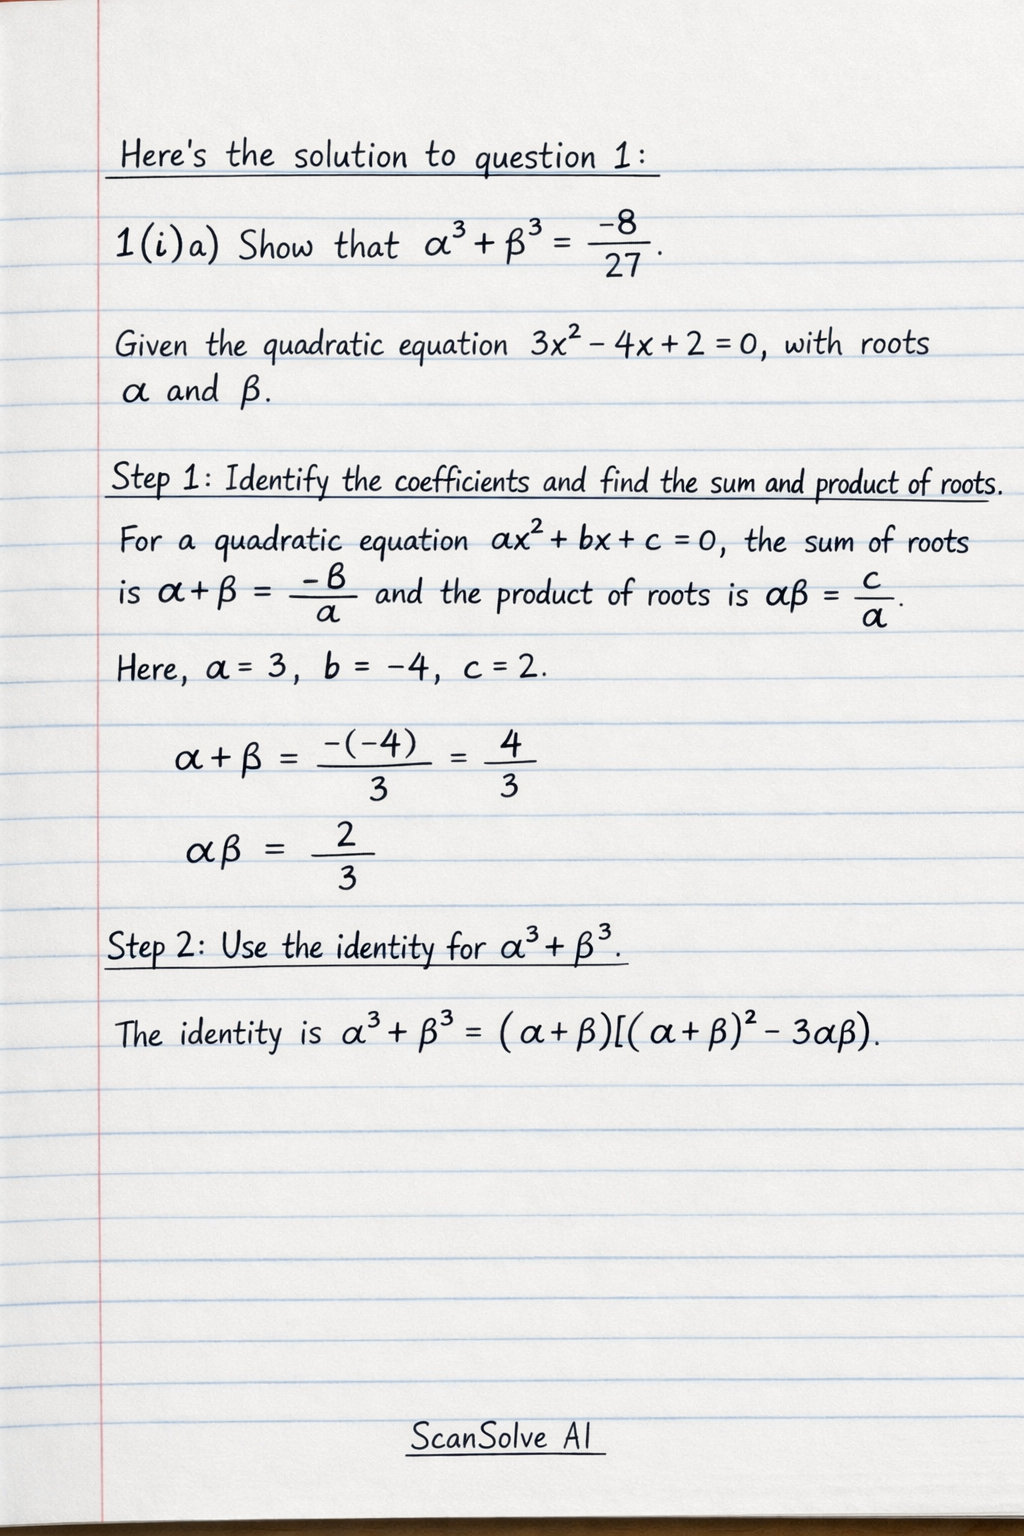 Here's the solution to question 1:
1(i)a) Show that α³ + β³ = -8/27.
Given the quadratic equation 3x² - 4x + 2 = 0, with roots
α and β.
Step 1: Identify the coefficients and find the sum and product of roots.
For a quadratic equation ax² + bx + c = 0, the sum of roots
is α + β = -β/a and the product of roots is αβ = c/a.
Here, a = 3, b = -4, c = 2.
α + β = -(-4)/3 = 4/3
αβ = 2/3
Step 2: Use the identity for α³ + β³.
The identity is α³ + β³ = (α + β)[(α + β)² - 3αβ).
ScanSolve AI